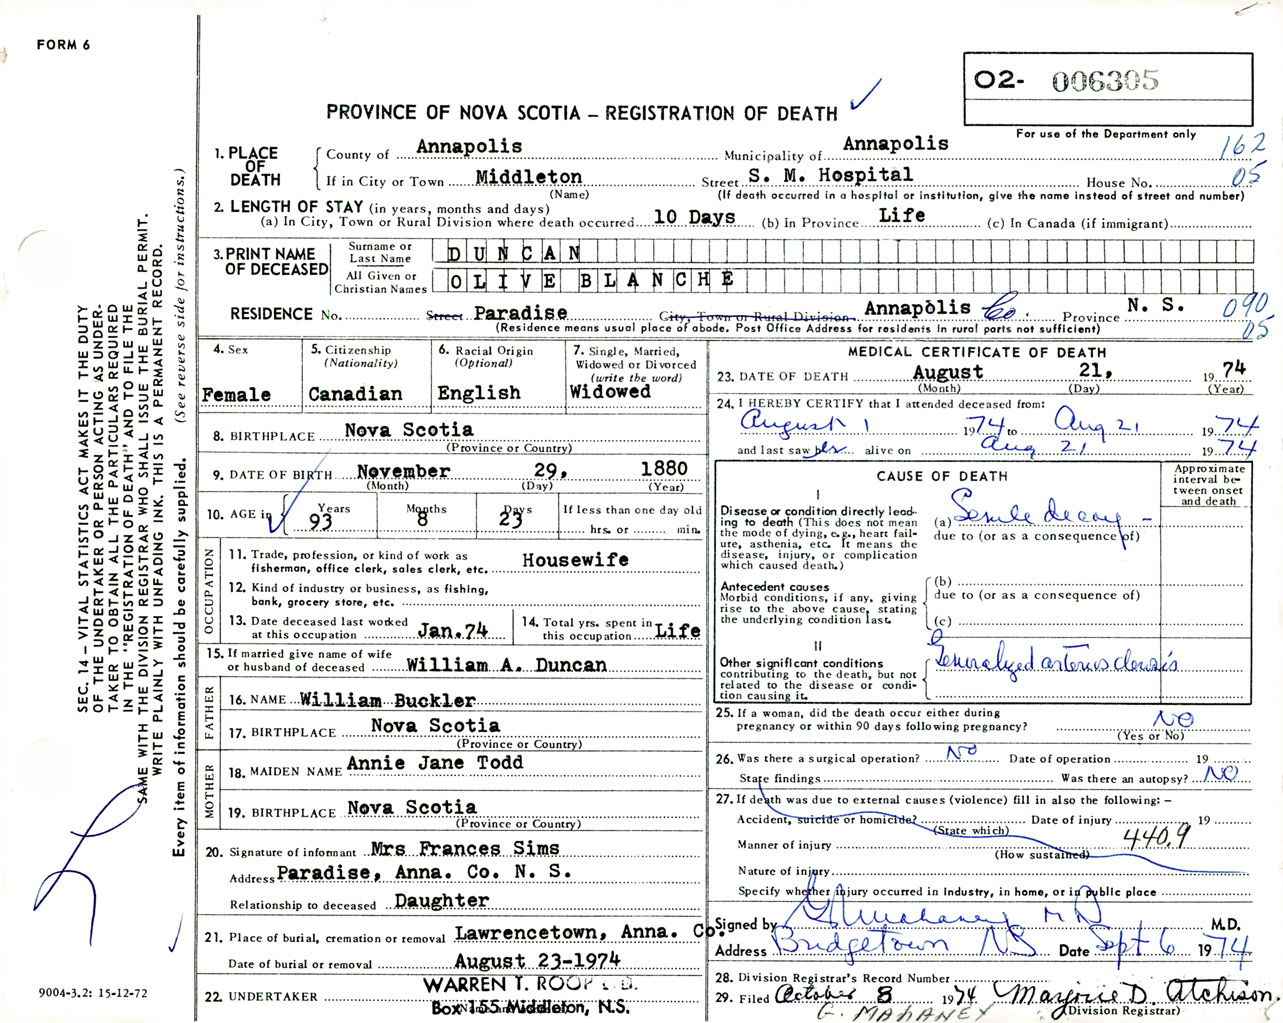 FORM 6
O2- 006305
PROVINCE OF NOVA SCOTIA – REGISTRATION OF DEATH
For use of the Department only
1. PLACE OF DEATH
County of Annapolis Municipality of Annapolis 162
If in City or Town Middleton Street S. M. Hospital House No. 05
(Name) (If death occurred in a hospital or institution, give the name instead of street and number)
2. LENGTH OF STAY (in years, months and days)
(a) In City, Town or Rural Division where death occurred 10 Days (b) In Province Life (c) In Canada (if immigrant)
3. PRINT NAME OF DECEASED
Surname or Last Name DUNCAN
All Given or Christian Names OLIVE BLANCHE
RESIDENCE No. Street Paradise City, Town or Rural Division Annapolis Co. Province N. S. 090
(Residence means usual place of abode. Post Office Address for residents in rural parts not sufficient) 05
4. Sex
Female
5. Citizenship (Nationality)
Canadian
6. Racial Origin (Optional)
English
7. Single, Married, Widowed or Divorced (write the word)
Widowed
8. BIRTHPLACE Nova Scotia
(Province or Country)
9. DATE OF BIRTH November 29, 1880
(Month) (Day) (Year)
10. AGE in Years Months Days If less than one day old
93 8 23 hrs. or min.
OCCUPATION
11. Trade, profession, or kind of work as fisherman, office clerk, sales clerk, etc. Housewife
12. Kind of industry or business, as fishing, bank, grocery store, etc.
13. Date deceased last worked at this occupation Jan.74
14. Total yrs. spent in this occupation Life
15. If married give name of wife or husband of deceased William A. Duncan
FATHER
16. NAME William Buckler
17. BIRTHPLACE Nova Scotia
(Province or Country)
MOTHER
18. MAIDEN NAME Annie Jane Todd
19. BIRTHPLACE Nova Scotia
(Province or Country)
20. Signature of informant Mrs Frances Sims
Address Paradise, Anna. Co. N. S.
Relationship to deceased Daughter
21. Place of burial, cremation or removal Lawrencetown, Anna. Co.
Date of burial or removal August 23-1974
22. UNDERTAKER WARREN T. ROOP
Box 155 Middleton, N.S.
MEDICAL CERTIFICATE OF DEATH
23. DATE OF DEATH August 21, 1974
(Month) (Day) (Year)
24. I HEREBY CERTIFY that I attended deceased from:
August 1 1974 to Aug 21 1974
and last saw her alive on Aug 21 1974
CAUSE OF DEATH
Approximate interval between onset and death
I
Disease or condition directly leading to death (This does not mean the mode of dying, e.g., heart failure, asthenia, etc. It means the disease, injury, or complication which caused death.)
(a) Senile decay –
due to (or as a consequence of)
Antecedent causes
Morbid conditions, if any, giving rise to the above cause, stating the underlying condition last.
(b)
due to (or as a consequence of)
(c)
II
Other significant conditions contributing to the death, but not related to the disease or condition causing it.
Generalized arteriosclerosis
25. If a woman, did the death occur either during pregnancy or within 90 days following pregnancy? NO
(Yes or No)
26. Was there a surgical operation? NO Date of operation 19
State findings Was there an autopsy? NO
27. If death was due to external causes (violence) fill in also the following: –
Accident, suicide or homicide? Date of injury 19
(State which)
Manner of injury 440.9
(How sustained)
Nature of injury
Specify whether injury occurred in Industry, in home, or in public place
Signed by G Mahaney MD M.D.
Address Bridgetown NS Date Sept 6 1974
28. Division Registrar's Record Number
29. Filed October 8 1974 Marjorie D. Atchison
G. MAHANEY (Division Registrar)
SEC. 14 – VITAL STATISTICS ACT MAKES IT THE DUTY
OF THE UNDERTAKER OR PERSON ACTING AS UNDER-
TAKER TO OBTAIN ALL THE PARTICULARS REQUIRED
IN THE "REGISTRATION OF DEATH" AND TO FILE THE
SAME WITH THE DIVISION REGISTRAR WHO SHALL ISSUE THE BURIAL PERMIT.
WRITE PLAINLY WITH UNFADING INK. THIS IS A PERMANENT RECORD.
Every item of information should be carefully supplied. (See reverse side for instructions.)
9004-3.2: 15-12-72